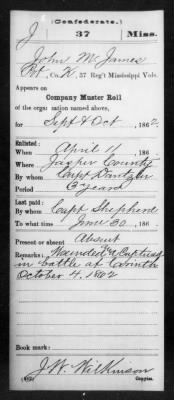 (Confederate.)
J 37 Miss.
John M. James
Pvt, Co. K, 37 Reg't Mississippi Vols.
Appears on
Company Muster Roll
of the organization named above,
for Sept & Oct, 1862.
Enlisted:
When April 11, 186 .
Where Jasper County
By whom Capt Dantzler
Period 3 years
Last paid:
By whom Capt Shepherd
To what time June 30, 186 .
Present or absent Absent
Remarks: Wounded & Captured
in battle at Corinth
October 4, 1862
Book mark:
J. W. Wilkinson
(642) Copyist.